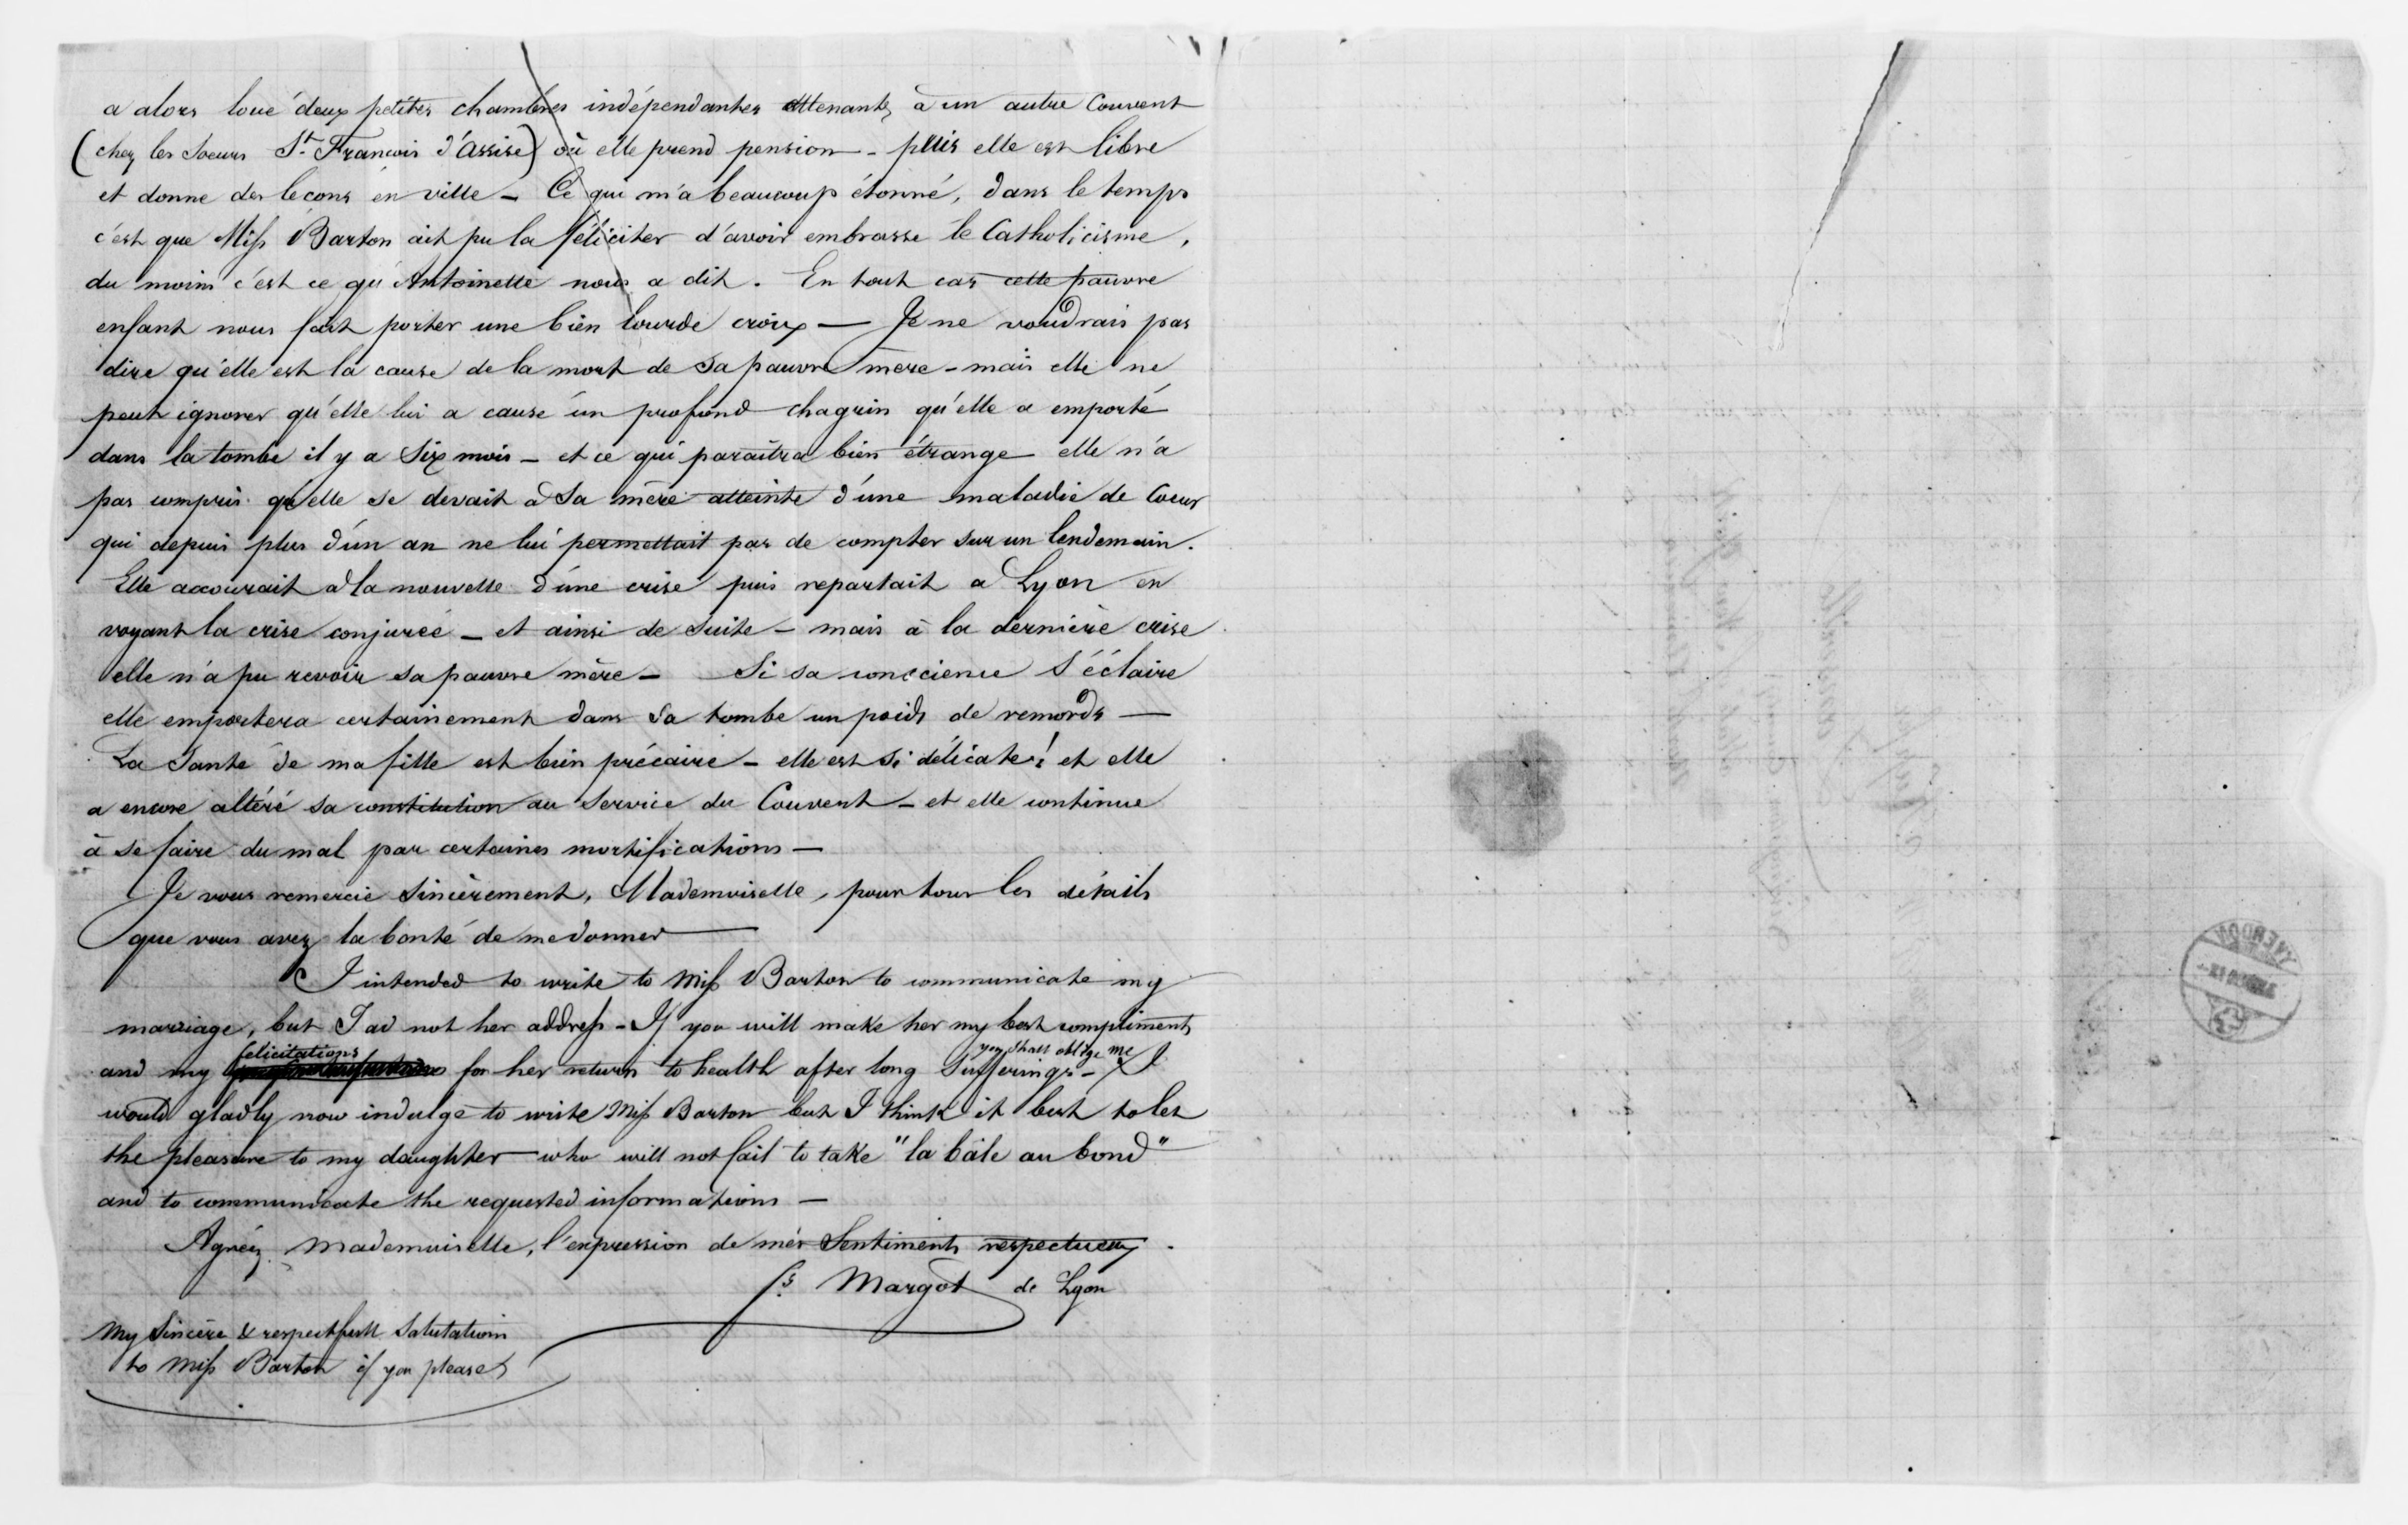 a alors loué deux petites chambres indépendantes attenants à un autre Couvent
(chez les Soeurs St. Francois d'Assise) où elle prend pension - puis elle est libre
et donne des lecons en ville - Ce qui m'a beaucoup étonné, dans le temps
c'est que Miss Barton ait pu la féliciter d'avoir embrassé le Catholicisme,
du moins c'est ce qu'Antoinette nous a dit. En tout cas cette pauvre
enfant nous fait porter une bien lourde croix — Je ne voudrais pas
dire qu'elle est la cause de la mort de sa pauvre mère - mais elle ne
peut ignorer qu'elle lui a causé un profond chagrin qu'elle a emporté
dans la tombe il y a Six mois - et ce qui paraîtra bien étrange elle n'a
pas compris qu'elle se devait à Sa mère atteinte d'une maladie de Coeur
qui depuis plus d'un an ne lui permettait pas de compter sur un lendemain.
Elle accourait à la nouvelle d'une crise puis repartait a Lyon en
voyant la crise conjurée - et ainsi de Suite - mais à la dernière crise
elle n'a pu revoir sa pauvre mère - Si sa conscience s'éclaire
elle emportera certainement dans Sa tombe un poids de remords —
La Santé de ma fille est bien précaire - elle est si délicate! et elle
a encore altéré sa constitution au Service du Couvent - et elle continue
à se faire du mal par certaines mortifications —
Je vous remercie Sincèrement, Mademoiselle, pour tous les détails
que vous avez la bonté de me donner —
I intended to write to Miss Barton to communicate my
marriage, but I ad not her address - If you will make her my best compliments
and my felicitations for her return to health after long Sufferings - you shall oblige me I
would gladly now indulge to write Miss Barton but I think it best to let
the pleasure to my daughter who will not fail to take "la bâle au bond"
and to communicate the requested informations —
Agréez Mademoiselle, l'expression de mes Sentiments respectueux.
fs Margot de Lyon
My Sincère & respectfull Salutations
to Miss Barton if you please
YVERDON